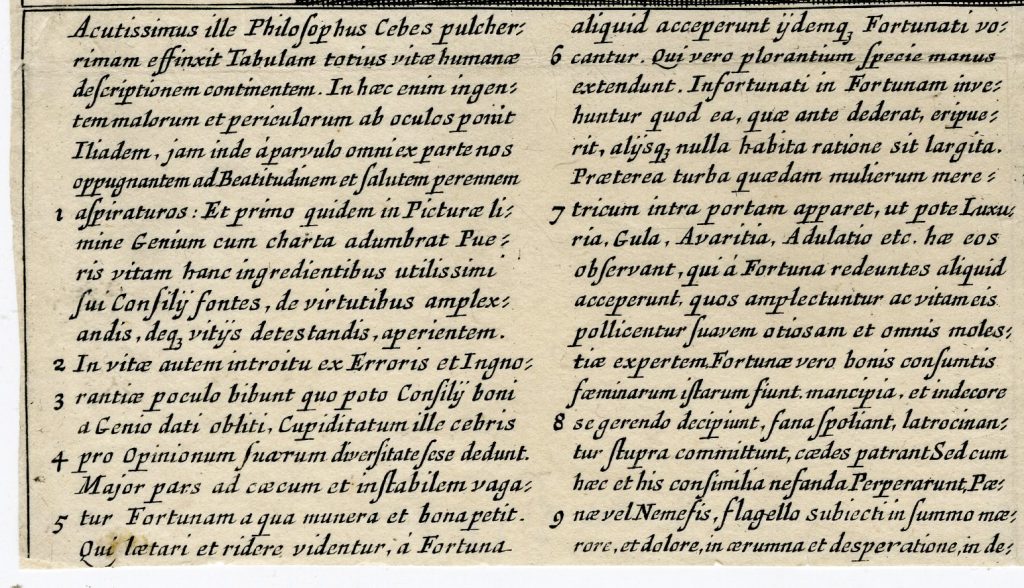 Acutissimus ille Philosophus Cebes pulcher-
rimam effinxit Tabulam totius vitæ humanæ
descriptionem continentem. In hæc enim ingen-
tem malorum et periculorum ab oculos ponit
Iliadem, jam inde á parvulo omni ex parte nos
oppugnantem ad Beatitudinem et salutem perennem
1 aspiraturos: Et primo quidem in Picturæ li-
mine Genium cum charta adumbrat Pue-
ris vitam hanc ingredientibus utilissimi
sui Consilij fontes, de virtutibus amplex-
andis, deqꝫ vitijs detestandis, aperientem.
2 In vitæ autem introitu ex Erroris et Ingno-
3 rantiæ poculo bibunt quo poto Consilij boni
a Genio dati obliti, Cupiditatum ille cebris
4 pro Opinionum suarum diversitate sese dedunt.
Major pars ad cæcum et instabilem vaga-
5 tur Fortunam a qua munera et bona petit.
Qui lætari et ridere videntur, á Fortuna
aliquid acceperunt ijdemqꝫ Fortunati vo-
6 cantur. Qui vero plorantium specie manus
extendunt. Infortunati in Fortunam inve-
huntur quod ea, quæ ante dederat, eripue-
rit, alijsqꝫ nulla habita ratione sit largita.
Præterea turba quædam mulierum mere-
7 tricum intra portam apparet, ut pote Luxu-
ria, Gula, Avaritia, Adulatio etc. hæ eos
observant, qui á Fortuna redeuntes aliquid
acceperunt, quos amplectuntur ac vitam eis
pollicentur suavem otiosam et omnis moles-
tiæ expertem. Fortunæ vero bonis consumtis
fæminarum istarum fiunt mancipia, et indecore
8 se gerendo decipiunt, fana spoliant, latrocinan-
tur stupra committunt, cædes patrant Sed cum
hæc et his consimilia nefanda Perperarunt, Pæ-
9 næ vel Nemesis, flagello subiecti in summo mæ-
rore, et dolore, in ærumna et desperatione, in de-